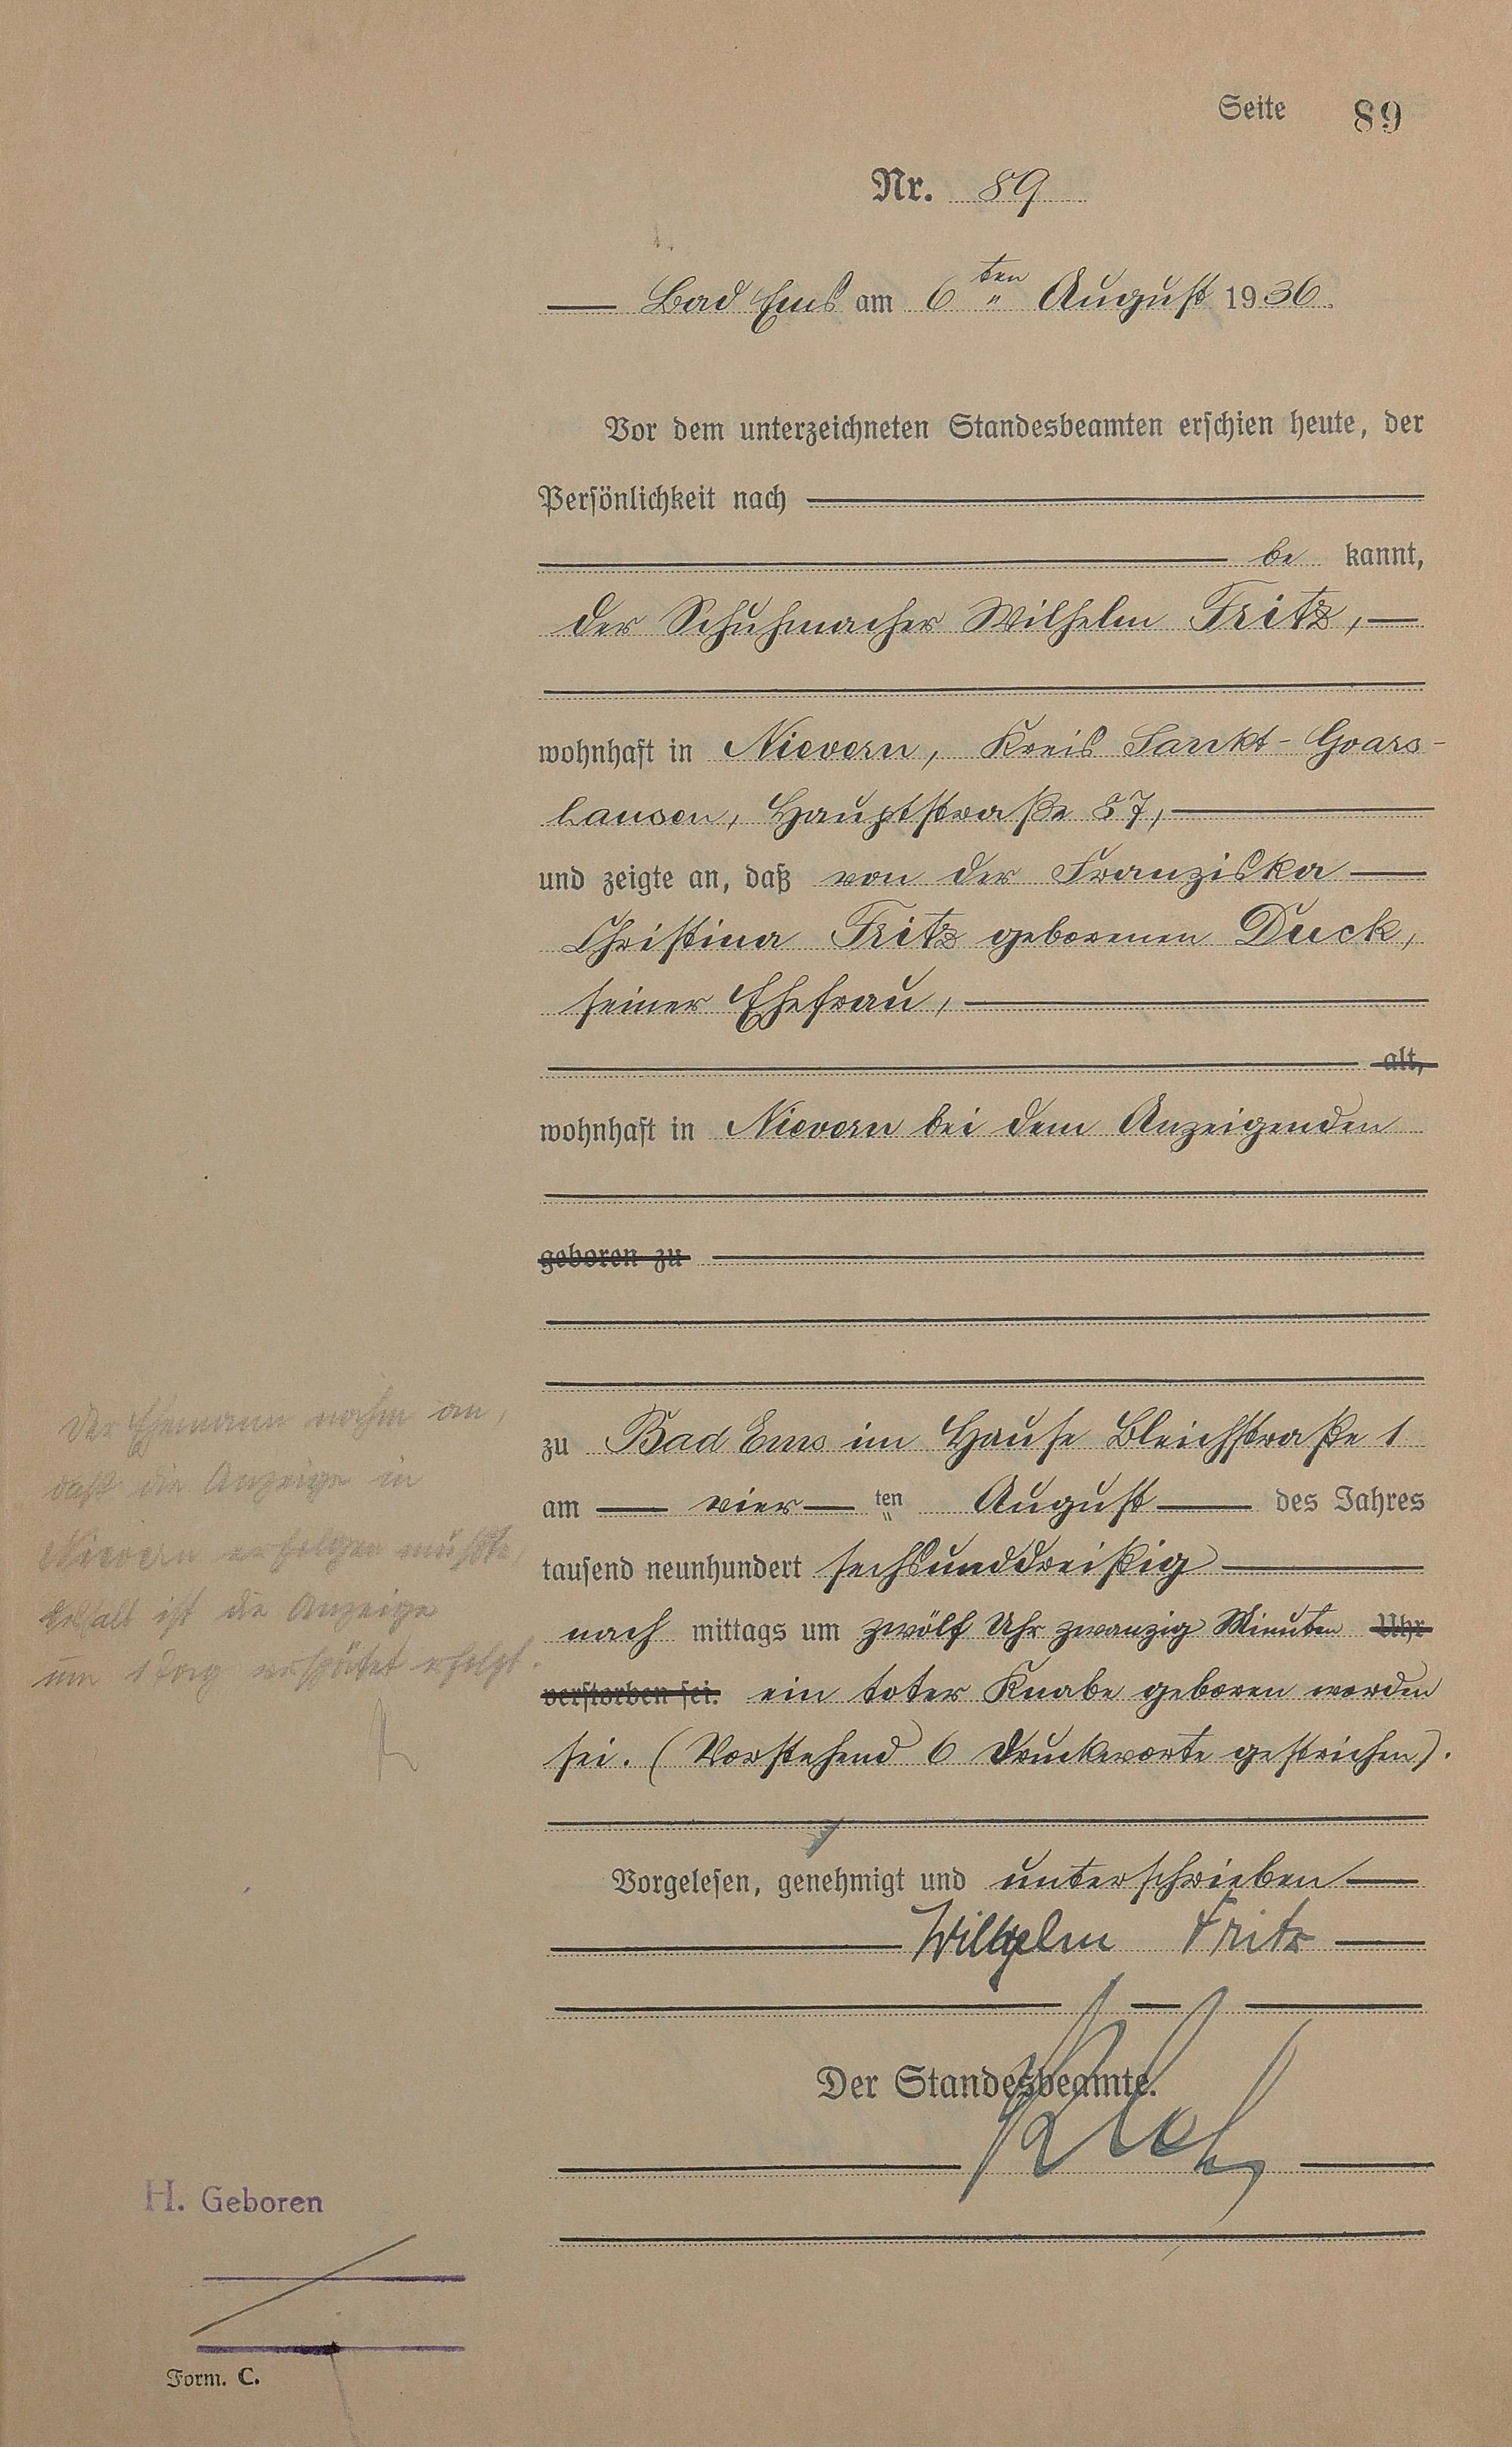 Seite 89
Nr. 89
Bad Ems am 6ten August 1936.
Vor dem unterzeichneten Standesbeamten erschien heute, der
Persönlichkeit nach
be kannt,
der Schuhmacher Wilhelm Fritz,
wohnhaft in Nievern, Kreis Sankt-Goars-
hausen, Hauptstraße 57,
und zeigte an, daß von der Franziska
Christina Fritz geborenen Duck,
seiner Ehefrau,
alt,
wohnhaft in Nievern bei dem Anzeigenden
geboren zu
zu Bad Ems im Hause Bleichstraße 1
am vier ten August des Jahres
tausend neunhundert sechsunddreißig
nach mittags um zwölf Uhr zwanzig Minuten Uhr
verstorben sei. ein toter Knabe geboren worden
sei. (Vorstehend 6 Druckworte gestrichen).
Vorgelesen, genehmigt und unterschrieben
Wilhelm Fritz
Der Standesbeamte.
Der Ehemann nahm an,
daß die Anzeige in
Nievern erfolgen müßte,
deshalb ist die Anzeige
um 1 Tag verspätet erfolgt.
H. Geboren
Form. C.